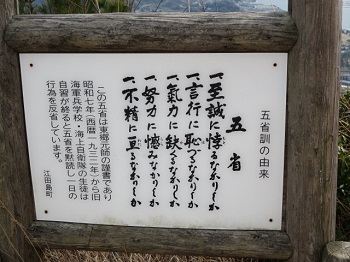 五省訓の由来
五省
一、至誠に悖るなかりしか
一、言行に恥づるなかりしか
一、氣力に缺くるなかりしか
一、努力に憾みなかりしか
一、不精に亘るなかりしか
この五省は東郷元師の謹書であり
昭和七年(西暦一九三二年)から旧
海軍兵学校・海上自衛隊の生徒は
自習が終ると五省を黙読し一日の
行為を反省しています。
江田島町